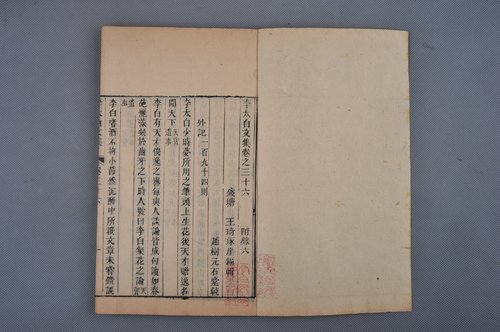 李太白文集卷之三十六 附錄六
錢塘 王琦琢崖編輯
趙樹元石堂較
外記一百九十四則
李太白少時夢所用之筆頭上生花後天才贍逸名
聞天下天寶遺事
李白有天才俊逸之譽每與人談論皆成句讀如春
葩麗藻粲於齒牙之下時人號曰李白粲花之論天寶
遺事
李白嗜酒不拘小節然沉酣中所撰文章未嘗錯誤